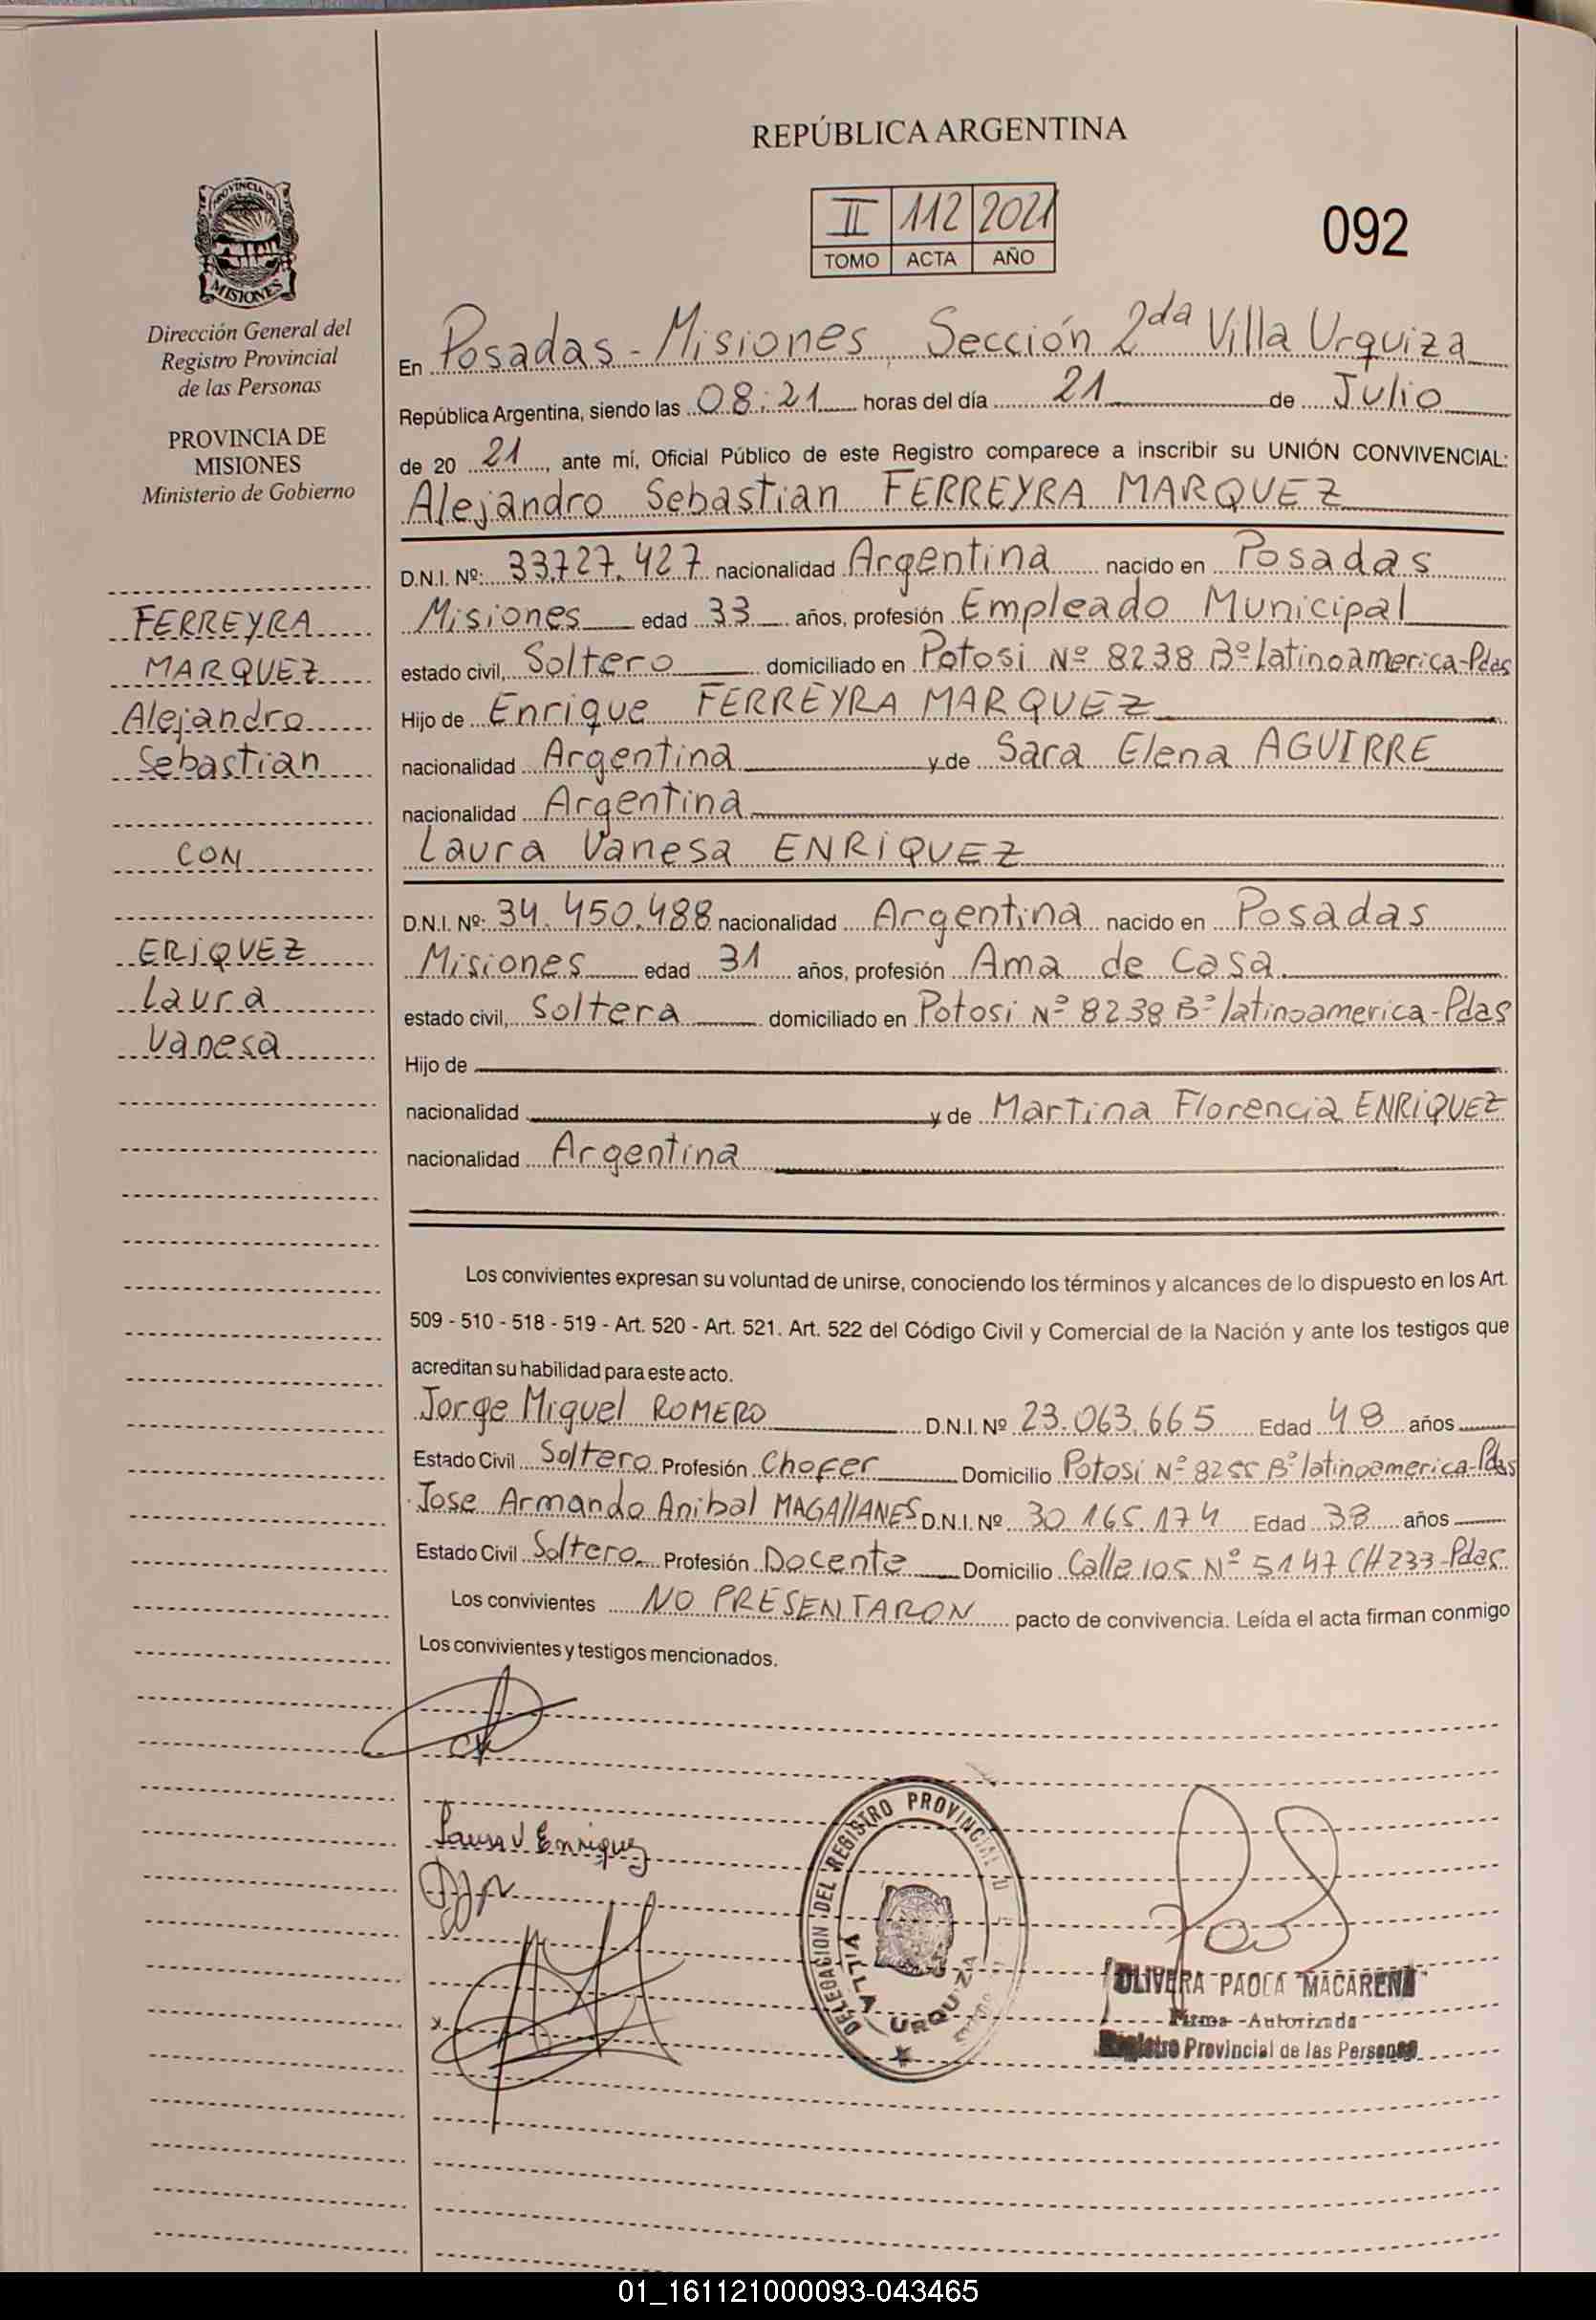 REPÚBLICA ARGENTINA
II 112 2021
TOMO ACTA AÑO
092
PROVINCIA DE
MISIONES
Dirección General del
Registro Provincial
de las Personas
PROVINCIA DE
MISIONES
Ministerio de Gobierno
FERREYRA
MARQUEZ
Alejandro
Sebastian
CON
ERIQUEZ
Laura
Vanesa
En Posadas - Misiones, Sección 2da Villa Urquiza
República Argentina, siendo las 08:21 horas del día 21 de Julio
de 20 21, ante mí, Oficial Público de este Registro comparece a inscribir su UNIÓN CONVIVENCIAL:
Alejandro Sebastian FERREYRA MARQUEZ
D.N.I. Nº: 33.727.427 nacionalidad Argentina nacido en Posadas
Misiones edad 33 años, profesión Empleado Municipal
estado civil, Soltero domiciliado en Potosi Nº 8238 Bº latinoamerica-Pdas
Hijo de Enrique FERREYRA MARQUEZ
nacionalidad Argentina y de Sara Elena AGUIRRE
nacionalidad Argentina
Laura Vanesa ENRIQUEZ
D.N.I. Nº: 34.450.488 nacionalidad Argentina nacido en Posadas
Misiones edad 31 años, profesión Ama de Casa
estado civil, Soltera domiciliado en Potosi Nº 8238 Bº latinoamerica-Pdas
Hijo de
nacionalidad y de Martina Florencia ENRIQUEZ
nacionalidad Argentina
Los convivientes expresan su voluntad de unirse, conociendo los términos y alcances de lo dispuesto en los Art.
509 - 510 - 518 - 519 - Art. 520 - Art. 521. Art. 522 del Código Civil y Comercial de la Nación y ante los testigos que
acreditan su habilidad para este acto.
Jorge Miguel ROMERO D.N.I. Nº 23.063.665 Edad 48 años
Estado Civil Soltero Profesión Chofer Domicilio Potosi Nº 8255 Bº latinoamerica-Pdas
Jose Armando Anibal MAGAllANES D.N.I. Nº 30.165.174 Edad 38 años
Estado Civil Soltero Profesión Docente Domicilio Calle 105 Nº 5147 CH 233-Pdas
Los convivientes NO PRESENTARON pacto de convivencia. Leída el acta firman conmigo
Los convivientes y testigos mencionados.
Laura V Enriquez
DELEGACION DEL REGISTRO PROVINCIAL
VILLA URQUIZA
OLIVERA PAOLA MACARENA
Firma Autorizada
Registro Provincial de las Personas
01_161121000093-043465